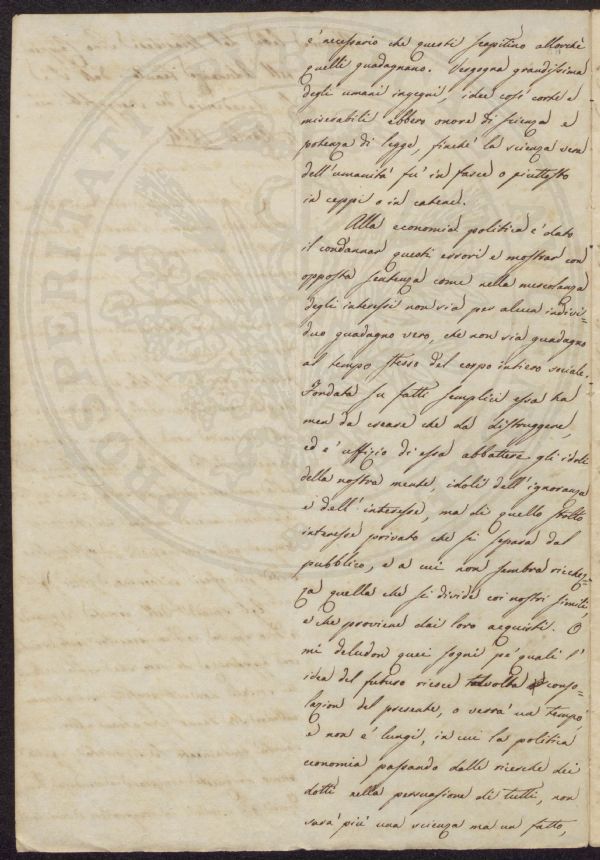 è necessario che questi scapitino allorchè
quelli guadagnano. Vergogna grandissima
degli umani ingegni, idee così corte e
miserabili ebbero onore di scienza e
potenza di legge, finchè la scienza vera
dell'umanità fu in fasce o piuttosto
in ceppi o in catene.
Alla economia politica è dato
il condannar questi errori e mostrar con
opposta sentenza come nella mescolanza
degli interessi non sia per alcun indivi=
duo guadagno vero, che non sia guadagno
al tempo stesso del corpo intiero sociale.
Fondata su fatti semplici essa ha
men da creare che da distruggere,
ed è uffizio di essa abbattere gli idoli
della nostra mente, idoli dell'ignoranza
e dell'interesse, ma di quello stolto
interesse privato che si separa dal
pubblico, e a cui non sembra ricchez=
za quella che si divide coi nostri simili,
e che proviene dai loro acquisti. O
mi deludon quei sogni pe' quali l'
idea del futuro riesce talvolta conso=
lazion del presente, o verrà un tempo,
e non è lungi, in cui la politica
economia passando dalle ricerche dei
dotti nella persuasione di tutti, non
sarà più una scienza ma un fatto,
PROSPERITAT